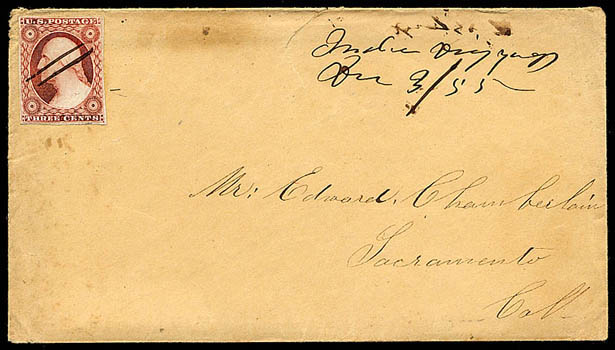 U.S. POSTAGE
THREE CENTS
India Diggings
3/55
Mr: Edward, Chamberlain
Sacramento
Call